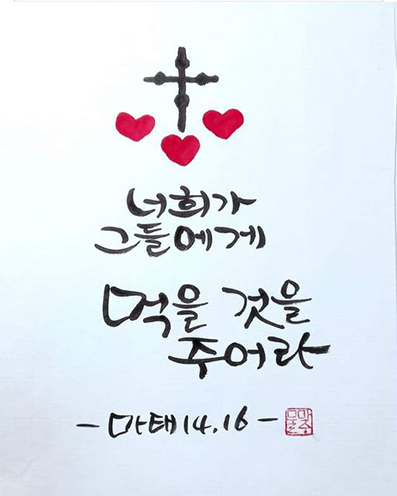 너희가
그들에게
먹을 것을
주어라
- 마태 14.16 -